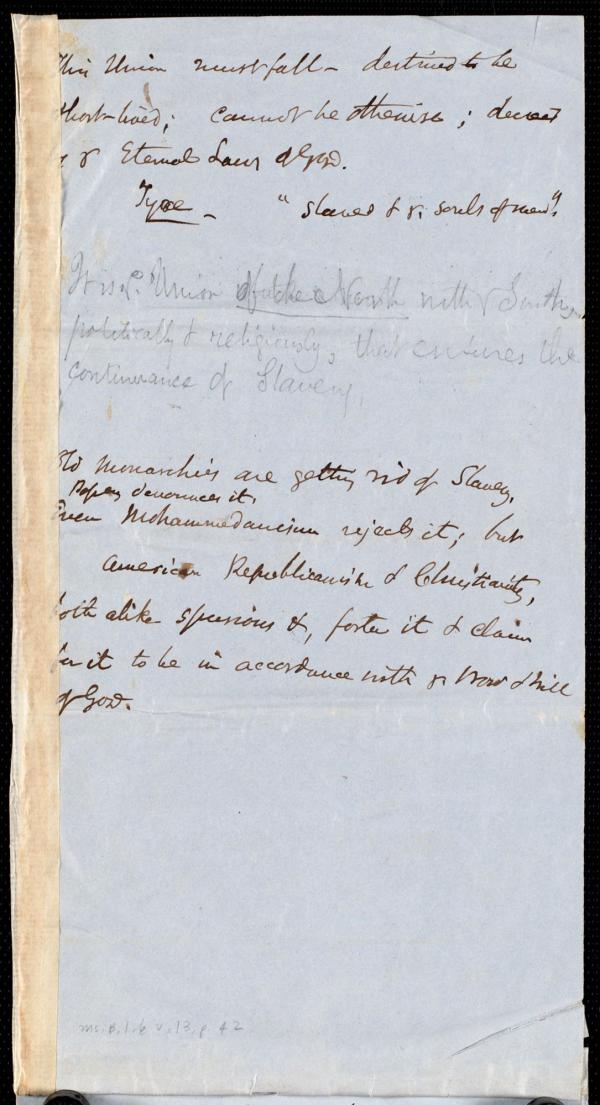 This Union must fall – destined to be
short-lived; cannot be otherwise; decreed
by yᵉ Eternal Laws of God.
Tyre – "slaves & yᵉ souls of men".
It is yᵉ Union of the North with yᵉ South,
politically & religiously, that ensures the
continuance of Slavery.
Old Monarchies are getting rid of Slavery.
Popery denounces it.
Even Mohammedanism rejects it; but
American Republicanism & Christianity,
both alike spurious &, foster it & claim
for it to be in accordance with yᵉ Word & Will
of God.
ms. B.1.6 v.13, p 42